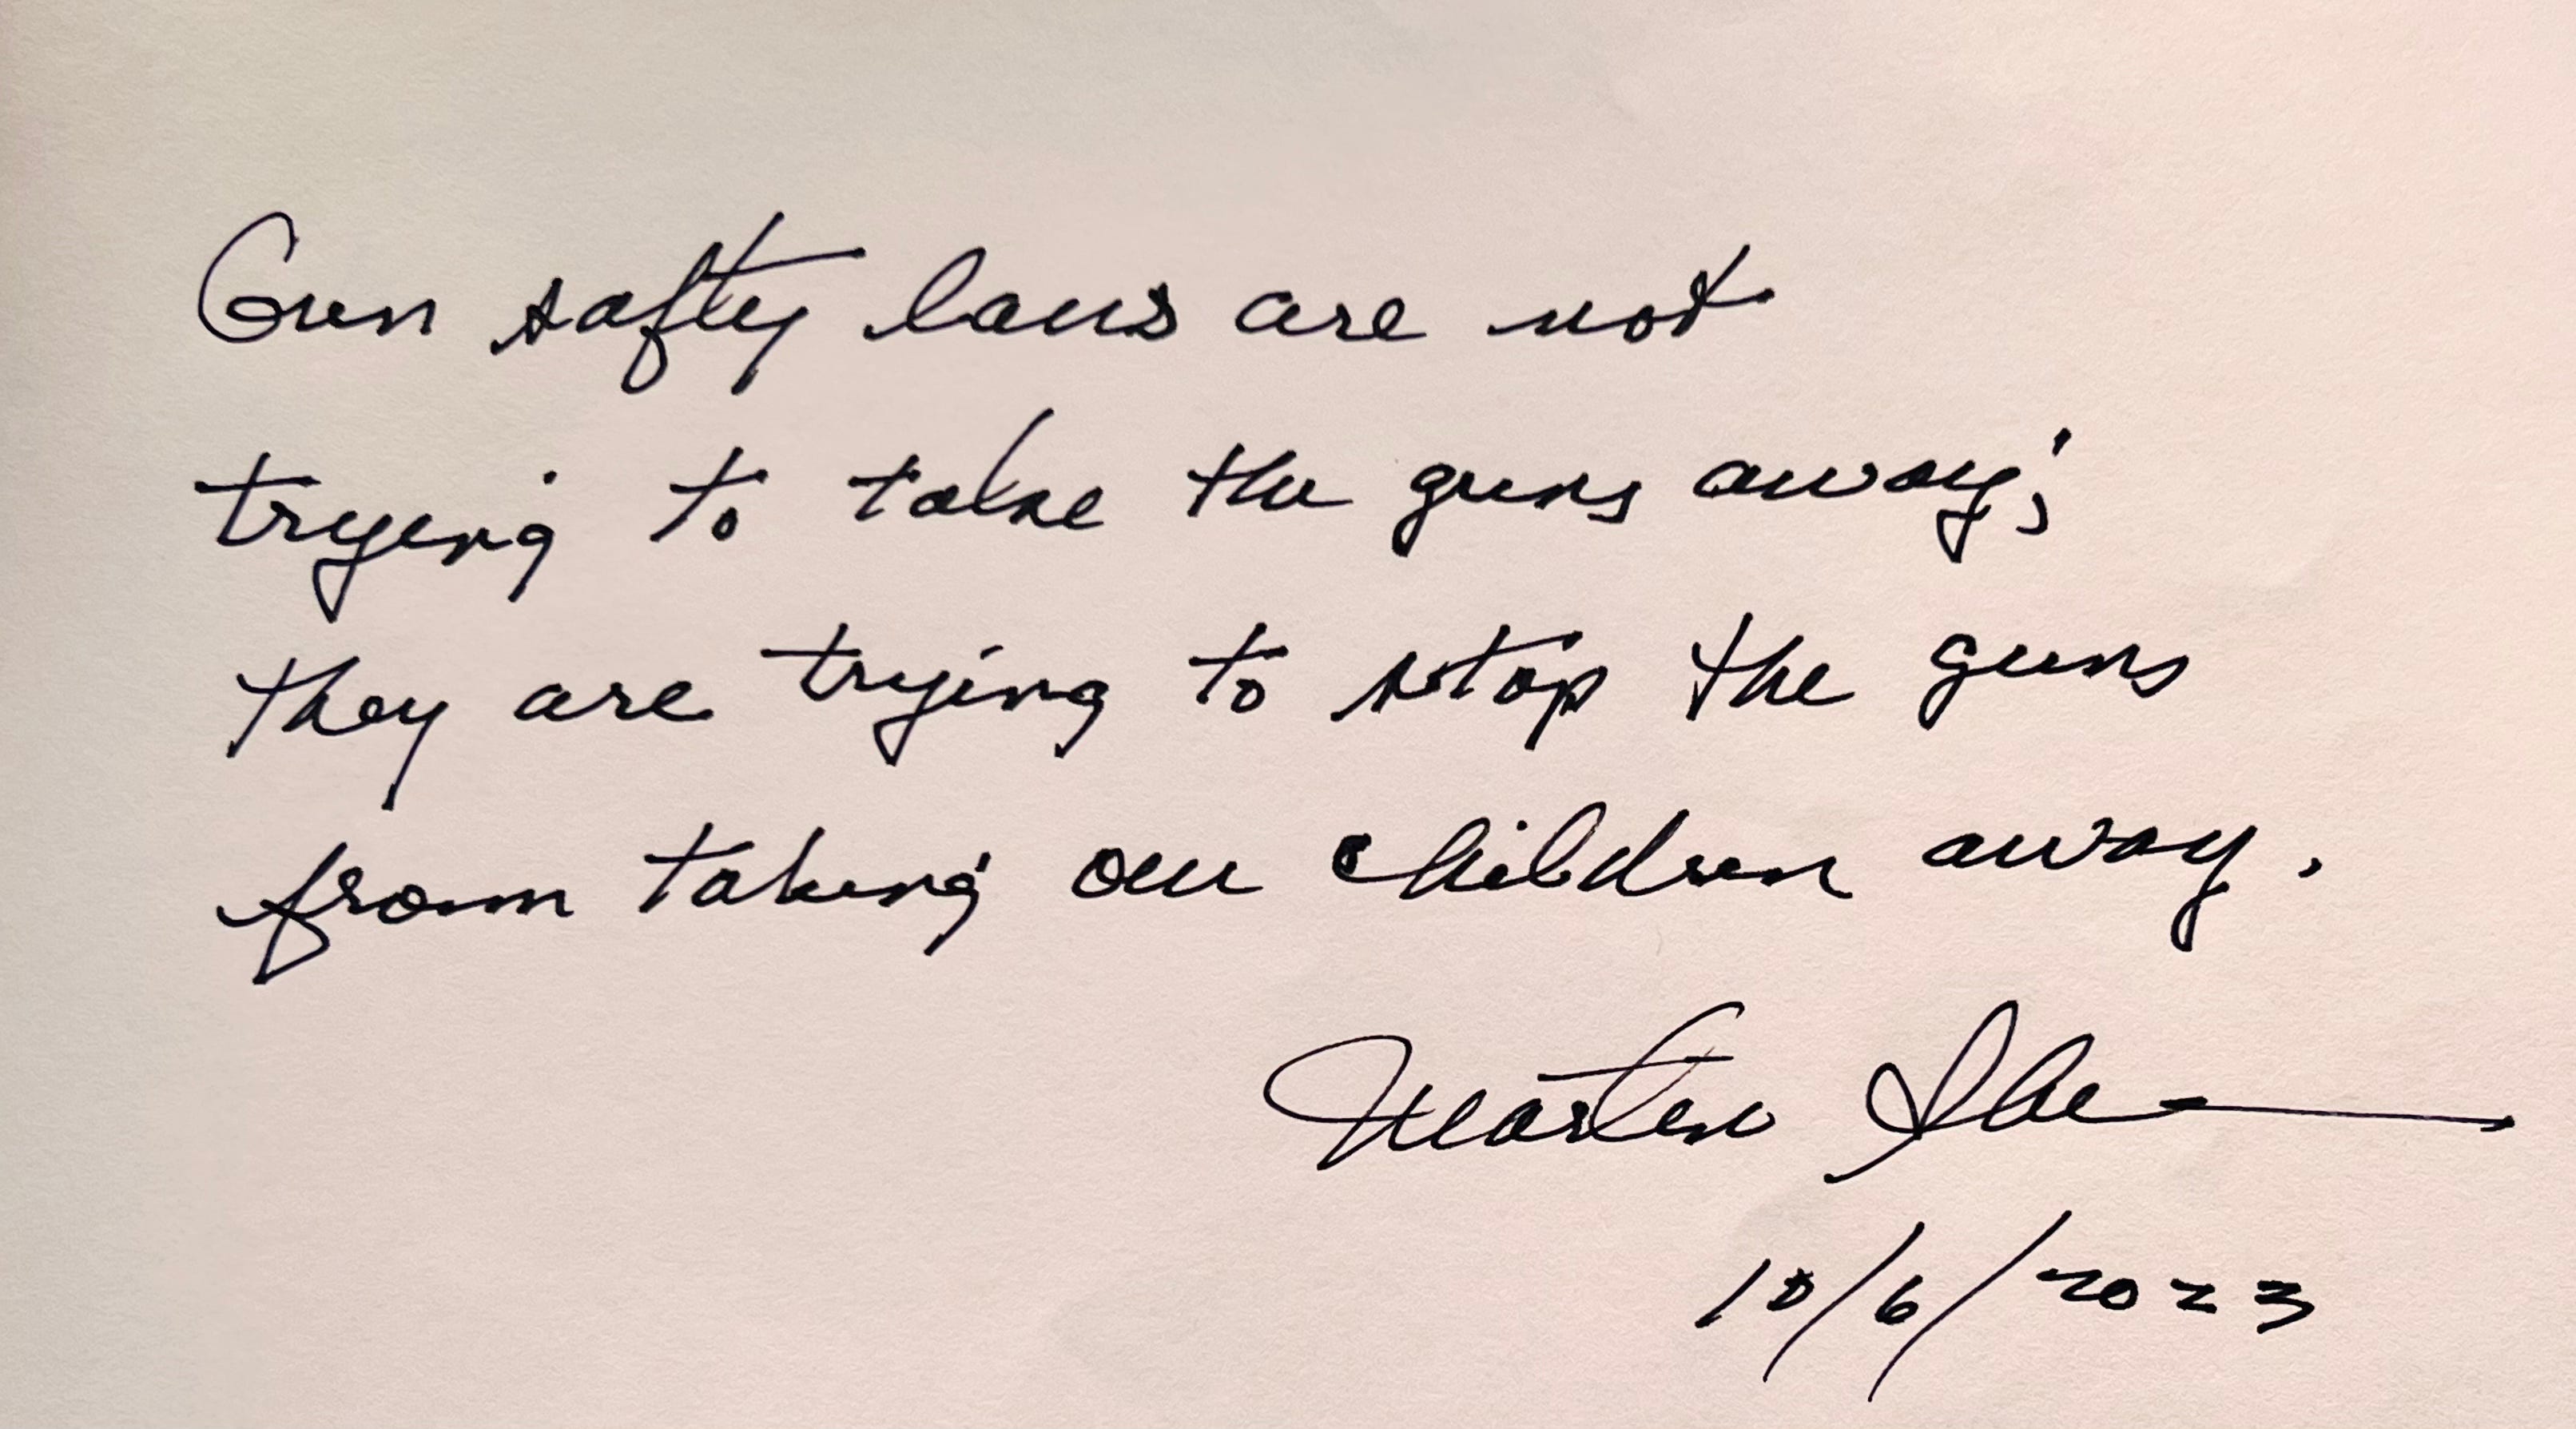 Gun safty laws are not
trying to take the guns away;
they are trying to stop the guns
from taking our children away.
10/6/2023